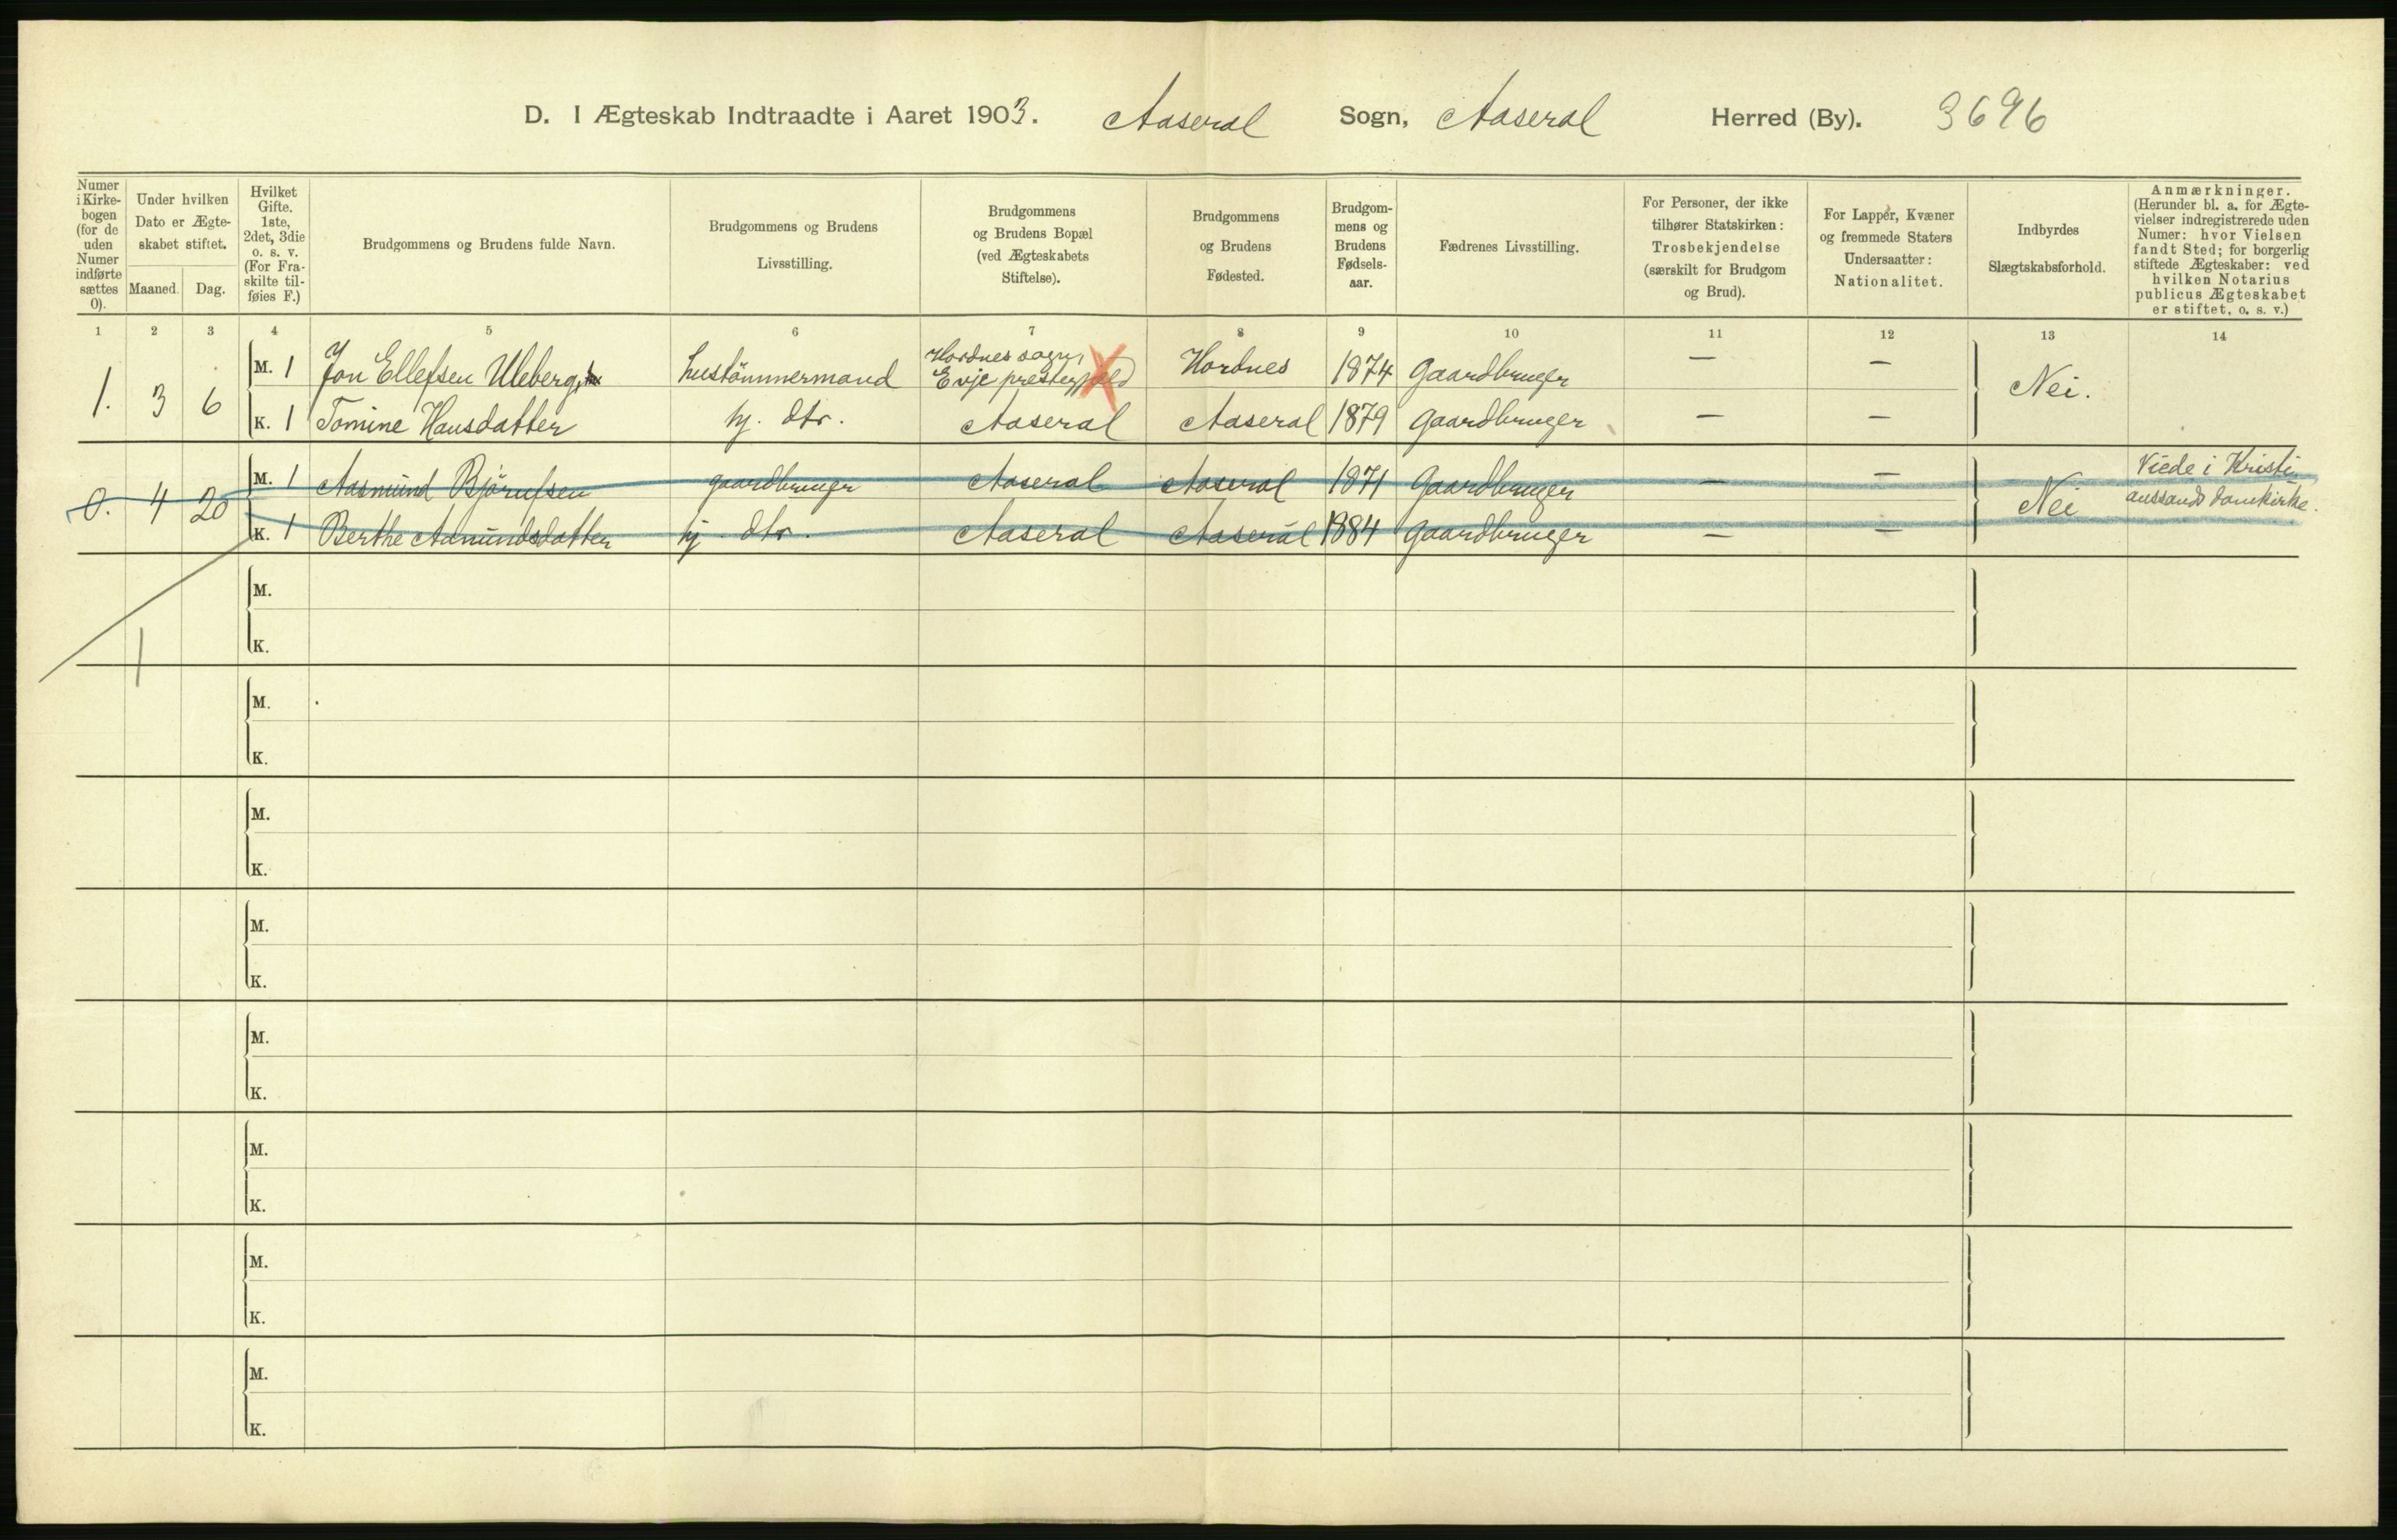 D. I Ægteskab Indtraadte i Aaret 1903. Aaseral Sogn, Aaseral Herred (By). 3696
Numer i Kirkebogen (for de uden Numer indførte sættes 0).
Under hvilken Dato er Ægteskabet stiftet.
Maaned. Dag.
Hvilket Gifte. 1ste, 2det, 3die o. s. v. (For Fraskilte tilføies F.)
Brudgommens og Brudens fulde Navn.
Brudgommens og Brudens Livsstilling.
Brudgommens og Brudens Bopæl (ved Ægteskabets Stiftelse).
Brudgommens og Brudens Fødested.
Brudgommens og Brudens Fødselsaar.
Fædrenes Livsstilling.
For Personer, der ikke tilhører Statskirken: Trosbekjendelse (særskilt for Brudgom og Brud).
For Lapper, Kvæner og fremmede Staters Undersaatter: Nationalitet.
Indbyrdes Slægtskabsforhold.
Anmærkninger. (Herunder bl. a. for Ægtevielser indregistrerede uden Numer: hvor Vielsen fandt Sted; for borgerlig stiftede Ægteskaber: ved hvilken Notarius publicus Ægteskabet er stiftet, o. s. v.)
1 2 3 4 5 6 7 8 9 10 11 12 13 14
1. 3 6 M. 1 Jon Ellefsen Uleberg, hustömmermand Hordnes sogn, Evje presteggjeld Hordnes 1874 Gaardbruger — — Nei.
K. 1 Tomine Hansdatter hj. dtr. Aaseral Aaseral 1879 Gaardbruger — —
0. 4 20 M. 1 Aasmund Björnfsen gaardbruger Aaseral Aaseral 1871 Gaardbruger — — Nei Viede i Kristi
anssands domkirke.
K. 1 Berthe Asmundsdatter hj. dtr. Aaseral Aaseral 1884 Gaardbruger — —
1
M.
K.
M.
K.
M.
K.
M.
K.
M.
K.
M.
K.
M.
K.
M.
K.